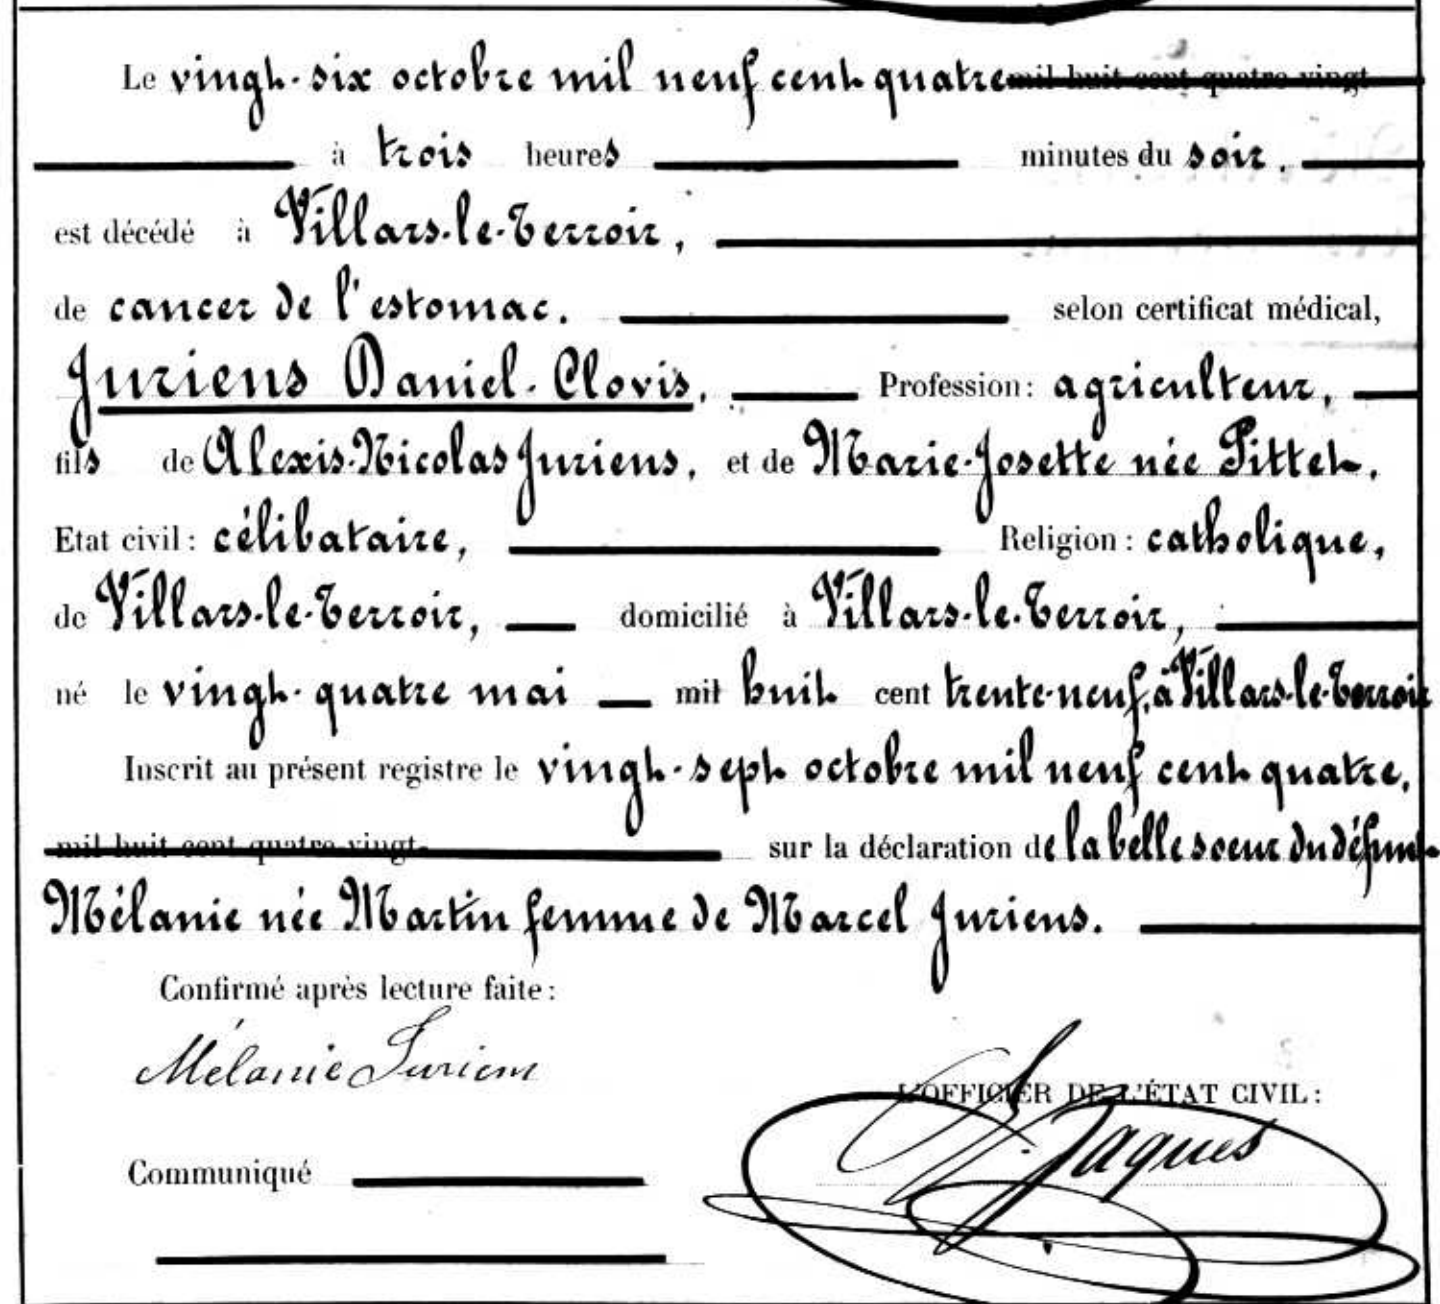 Le vingt-six octobre mil neuf cent quatre mil huit cent quatre vingt
à trois heures minutes du soir.
est décédé à Villars-le-Terroir,
de cancer de l'estomac. selon certificat médical,
Juriens Daniel-Clovis, Profession: agriculteur,
fils de Alexis-Nicolas Juriens, et de Marie-Josette née Pittet.
Etat civil: célibataire, Religion: catholique,
de Villars-le-Terroir, domicilié à Villars-le-Terroir,
né le vingt-quatre mai mil huit cent trente-neuf, à Villars-le-Terroir
Inscrit au présent registre le vingt-sept octobre mil neuf cent quatre,
mil huit cent quatre vingt- sur la déclaration de la belle soeur du défunt
Mélanie née Martin femme de Marcel Juriens.
Confirmé après lecture faite:
Mélanie Juriens
L'OFFICIER DE L'ÉTAT CIVIL:
Jaques
Communiqué